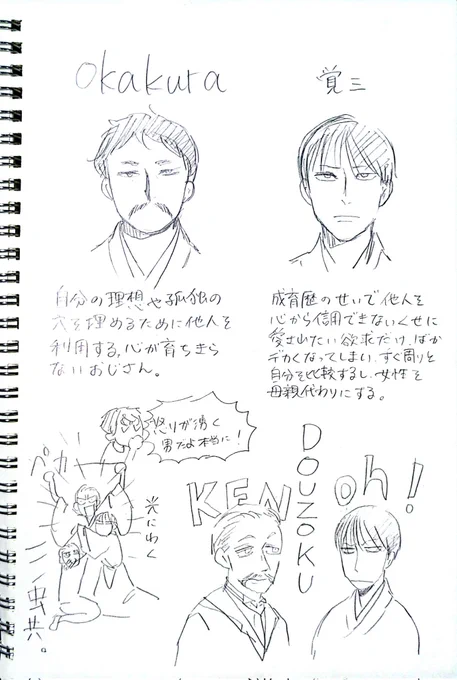 Okakura
覚三
自分の理想や孤独の
穴を埋めるために他人を
利用する、心が育ちきら
ないおじさん。
成育歴のせいで他人を
心から信用できないくせに
愛されたい欲求だけ、ばか
デカくなってしまい、すぐ周りと
自分を比較するし、女性を
母親代わりにする。
怒りが湧く
男だよ本当に!
ペカー
光にわく
虫共。
KEN
DOUZOKU
oh!